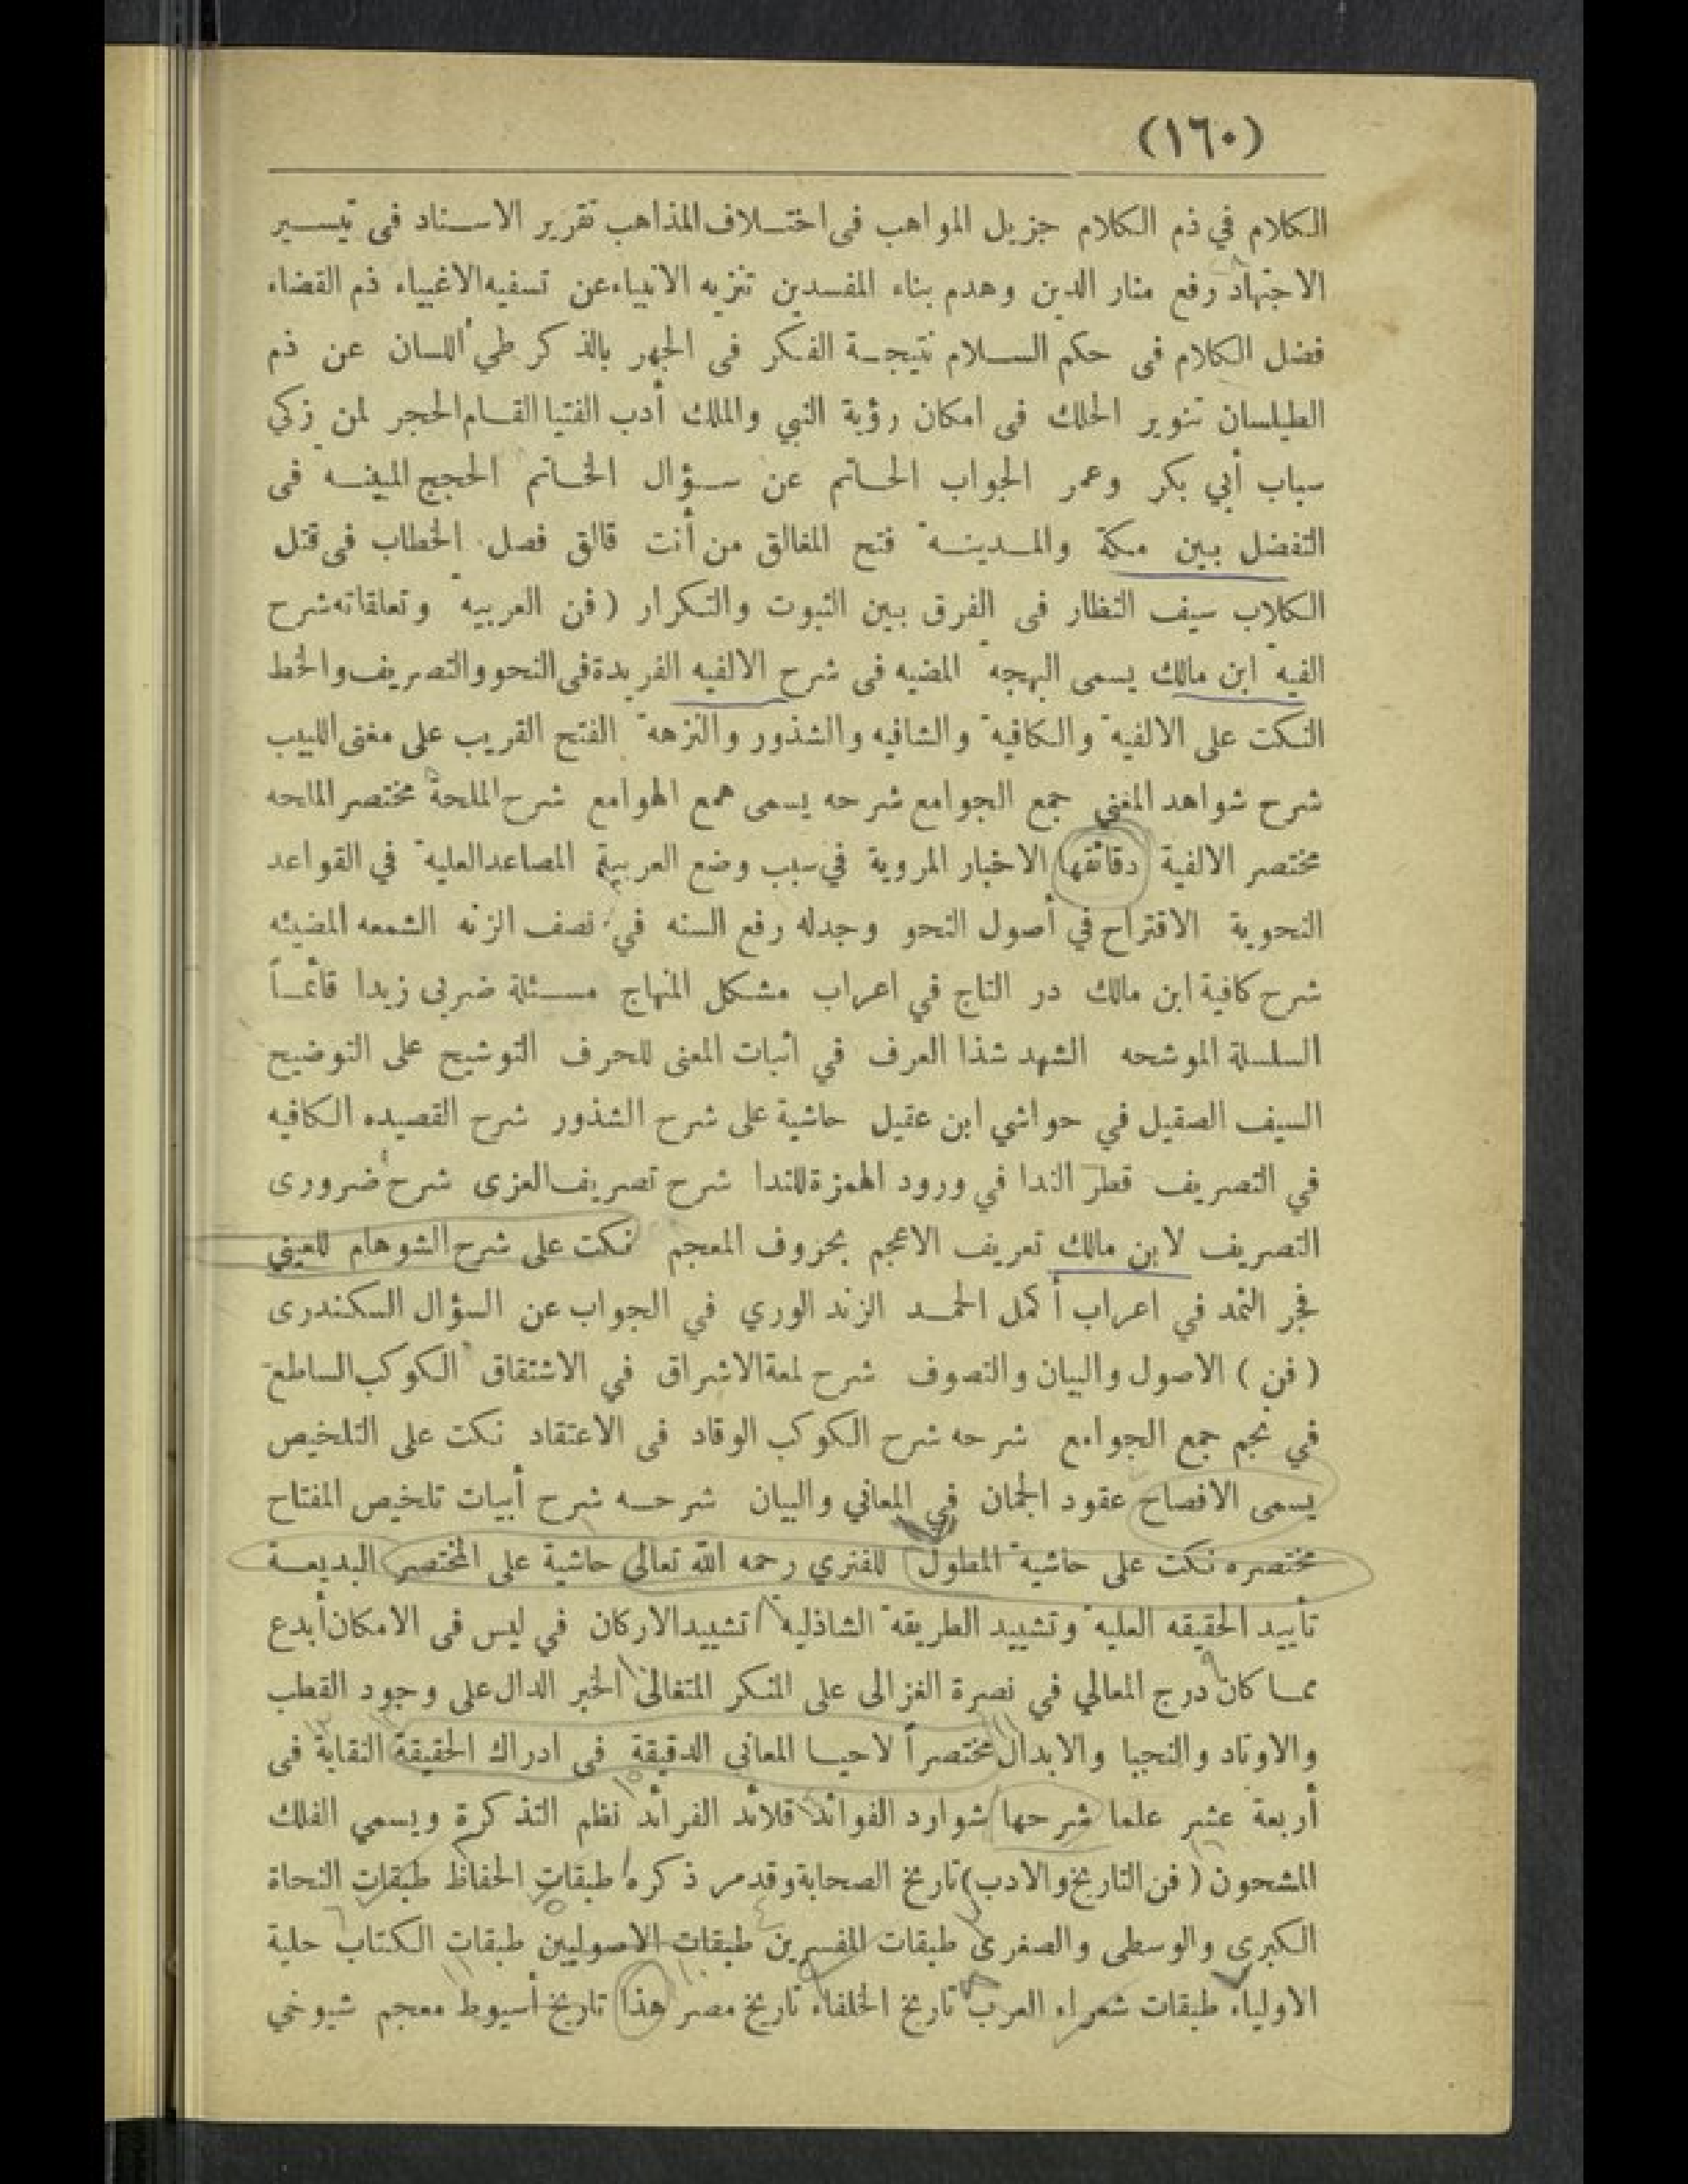 (١٦٠)
الكلام في ذم الكلام جزيل المواهب فى اختلاف المذاهب تقرير الاسناد فى تيسير
الاجتهاد رفع منار الدين وهدم بناء المفسدين تنزيه الانبياء عن تسفيه الاغبياء ذم القضاء
فضل الكلام فى حكم السلام نتيجة الفكر فى الجهر بالذكر طي اللسان عن ذم
الطيلسان تنوير الحلك فى امكان رؤية النبي والملك أدب الفتيا القام الحجر لمن زكي
سباب أبي بكر وعمر الجواب الحاتم عن سؤال الخاتم الحجج المبينه فى
التفضل بين مكة والمدينه فتح المغالق من أنت قالق فصل الخطاب فى قتل
الكلاب سيف النظار فى الفرق بين الثبوت والتكرار (فن العربيه وتعلقاته شرح
الفيه ابن مالك يسمى البهجه المضيه فى شرح الالفيه الفريدة فى النحو والتصريف والخط
النكت على الالفيه والكافيه والشافيه والشذور والنزهه الفتح القريب على مغنى اللبيب
شرح شواهد المغني جمع الجوامع شرحه يسمى همع الهوامع شرح الملحة مختصر الملحه
مختصر الالفية دقائقها الاخبار المروية في سبب وضع العربية المصاعد العليه في القواعد
النحوية الاقتراح في أصول النحو وجدله رفع السنه في نصف الزنه الشمعه المضيئه
شرح كافية ابن مالك در التاج في اعراب مشكل المنهاج مسئلة ضربى زيدا قائماً
السلسلة الموشحه الشهد شذا العرف في اثبات المعنى للحرف التوشيح على التوضيح
السيف الصقيل في حواشي ابن عقيل حاشية على شرح الشذور شرح القصيده الكافيه
في التصريف قطر الندا في ورود الهمزة للندا شرح تصريف العزى شرح ضرورى
التصريف لابن مالك تعريف الاعجم بحروف المعجم نكت على شرح الشوهام للعيني
فجر الثمد في اعراب أكمل الحمد الزند الوري في الجواب عن السؤال السكندرى
(فن) الاصول والبيان والتصوف شرح لمعة الاشراق في الاشتقاق الكوكب الساطع
في نجم جمع الجوامع شرحه شرح الكوكب الوقاد فى الاعتقاد نكت على التلخيص
يسمى الافصاح عقود الجمان في المعاني والبيان شرحه شرح أبيات تلخيص المفتاح
مختصره نكت على حاشية المطول للفنري رحمه الله تعالى حاشية على المختصر البديعة
تأييد الحقيقه العليه وتشييد الطريقه الشاذليه تشييد الاركان في ليس فى الامكان أبدع
مما كان درج المعالي في نصرة الغزالى على المنكر المتغالى الخبر الدال على وجود القطب
والاوتاد والنجبا والابدال مختصراً لاحيا المعانى الدقيقة فى ادراك الحقيقة النقاية فى
أربعة عشر علما شرحها شوارد الفوائد قلائد الفرائد نظم التذكرة ويسمي الفلك
المشحون (فن التاريخ والادب) تاريخ الصحابة وقد مر ذكره طبقات الحفاظ طبقات النحاة
الكبرى والوسطى والصغرى طبقات المفسرين طبقات الاصوليين طبقات الكتاب حلية
الاولياء طبقات شعراء العرب تاريخ الخلفاء تاريخ مصر هذا تاريخ أسيوط معجم شيوخي